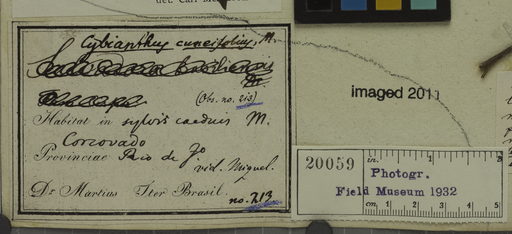 det. Carl M
Cybianthus cuneifolius, M.
(Obs. no. 213)
Habitat in sylvis caeduis M.
Corcovado
Provinciae Rio de Jo
vid. Miquel.
Dr. Martius Iter Brasil.
no. 213
imaged 2011
20059
Photogr.
Field Museum 1932
in. 1 2
cm. 1 2 3 4 5